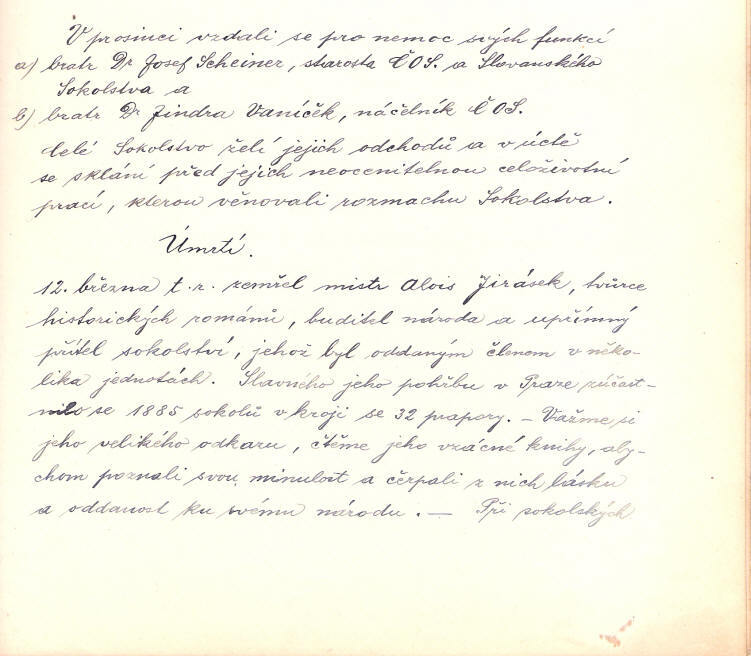 V prosinci vzdali se pro nemoc svých funkcí
a) bratr Dr Josef Scheiner, starosta ČOS. a Slovanského
Sokolstva a
b) bratr Dr Jindra Vaníček, náčelník ČOS.
Celé Sokolstvo želí jejich odchodů a v úctě
se sklání před jejich neocenitelnou celoživotní
prací, kterou věnovali rozmachu Sokolstva.
Úmrtí.
12. března t. r. zemřel mistr Alois Jirásek, tvůrce
historických románů, buditel národa a upřímný
přítel sokolství, jehož byl oddaným členem v něko-
lika jednotách. Slavného jeho pohřbu v Praze zúčast-
nilo se 1885 sokolů v kroji se 32 prapory. — Važme si
jeho velikého odkazu, čtěme jeho vzácné knihy, aby-
chom poznali svou minulost a čerpali z nich lásku
a oddanost ku svému národu. — Při sokolských